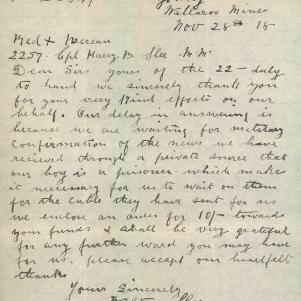 Wallaroo Mines
Nov 28th 18
Red + Bereau
2257. Cpl Harry B. Slee M.M.
Dear Sirs yours of the 22 - duly
to hand we sincerely thank you
for your very kind efforts on our
behalf. Our delay in answering is
because we are waiting for military
Confirmation of the news we have
recieved through a private source that
our boy is a prisoner which makes
it necessary for us to wait on them
for the cable they have sent for us
we enclose an order for 10/- towards
your funds & shall be very grateful
for any further word you may have
for us. please accept our heartfelt
thanks
Yours Sincerely